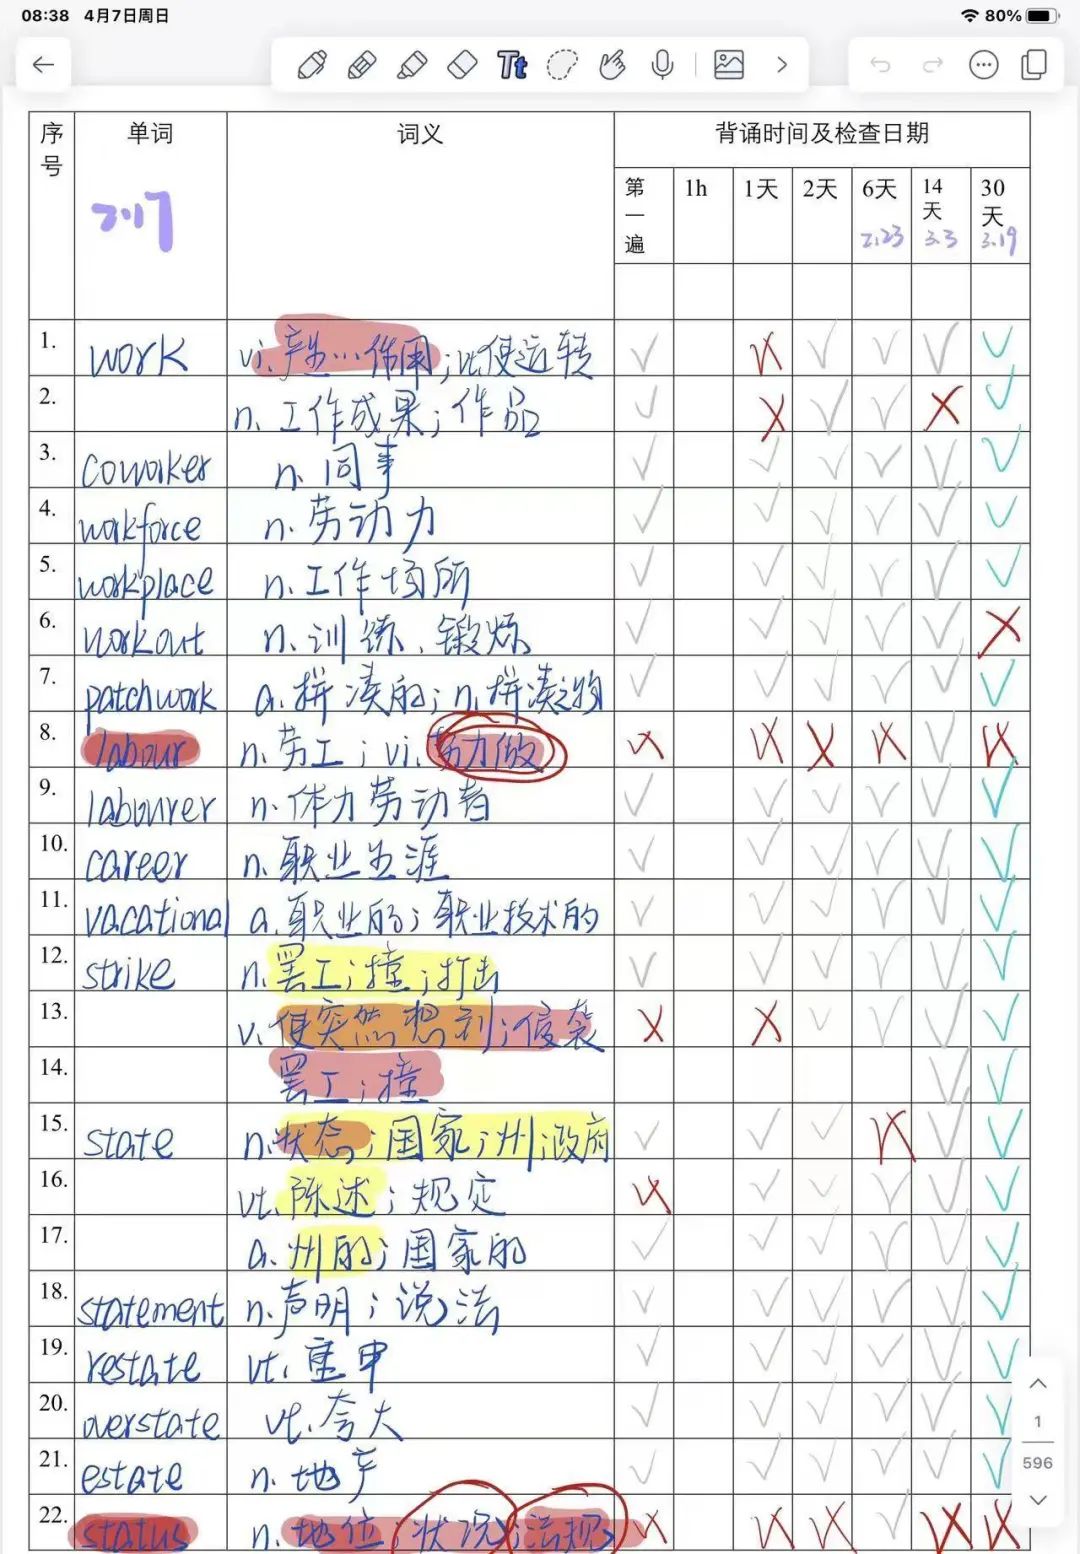 08:38 4月7日周日 80%
Tt
序号 单词 词义 背诵时间及检查日期
2.17
第一遍 1h 1天 2天 6天 14天 30天
2.23 3.3 3.19
1. work vi.产生…作用;vt.使运转
2. n.工作成果;作品
3. coworker n.同事
4. workforce n.劳动力
5. workplace n.工作场所
6. workout n.训练、锻炼
7. patchwork a.拼凑的;n.拼凑之物
8. labour n.劳工;vi.努力做
9. labourer n.体力劳动者
10. career n.职业生涯
11. vacational a.职业的;职业技术的
12. strike n.罢工;撞;打击
13. v.使突然想到;侵袭
14. 罢工;撞
15. state n.状态;国家;州;政府
16. vt.陈述;规定
17. a.州的;国家的
18. statement n.声明;说法
19. restate vt.重申
20. overstate vt.夸大
21. estate n.地产
22. status n.地位;状况;法规
1
596